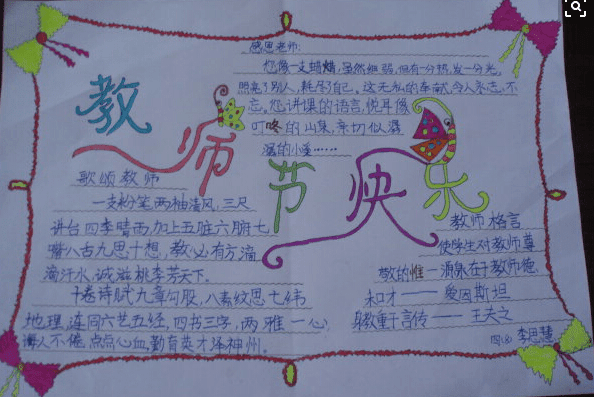 感恩老师:
您像一支蜡烛,虽然细弱,但有一分热,发一分光,
照亮了别人,耗尽了自己。这无私的奉献,令人永志不
忘。您讲课的语言,悦耳像
叮咚的山泉,亲切似潺
潺的小溪……
教师节快乐
歌颂教师
一支粉笔两袖清风,三尺
讲台四季晴雨,加上五脏六腑七
嘴八古九思十想,教必有方滴
滴汗水,诚滋桃李芳天下。
十卷诗赋九章勾股,八索纹思七纬
地理,连同六艺五经,四书三字,两雅一心,
诲人不倦,点点心血,勤育英才泽神州。
教师格言
使学生对教师尊
敬的惟一源泉在于教师德
和才——爱因斯坦
身教重于言传——王夫之
李思慧